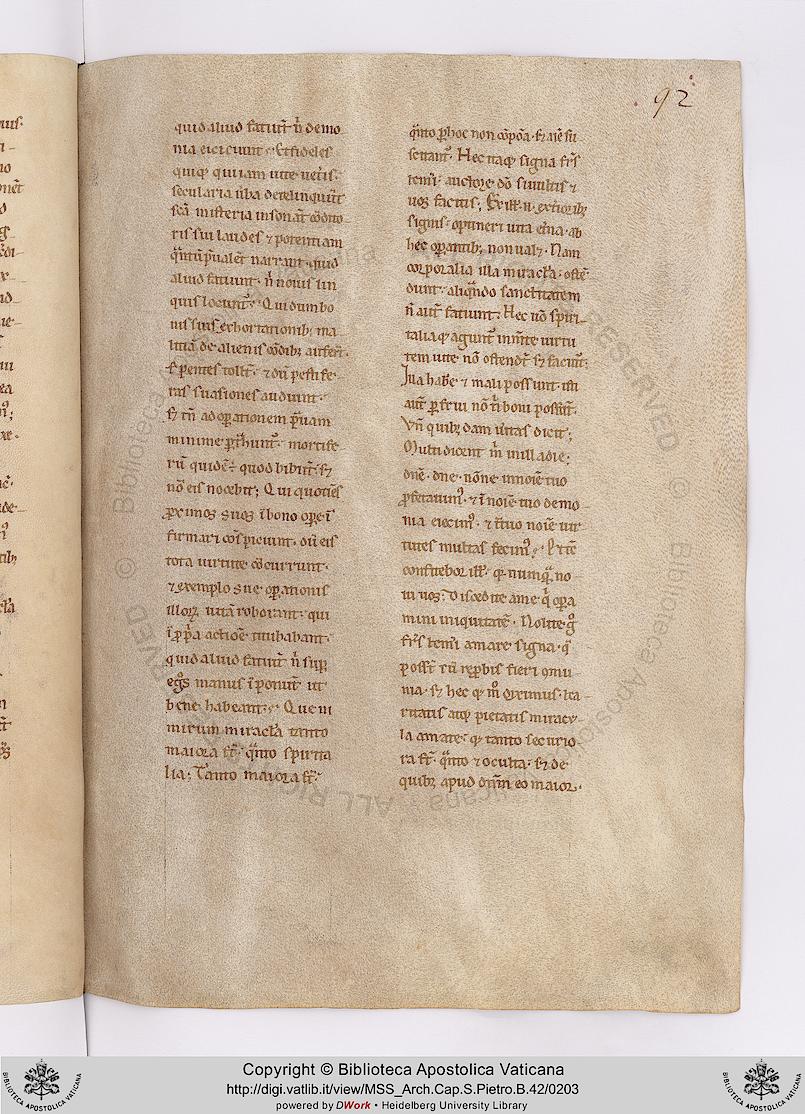 92
quid aliud faciunt n̄ demo
nia eiciunt. Et fideles
quiq; qui iam uite ueteris
secularia uerba derelinquunt
sc̄a misteria insonant
ris sui laudes ⁊ potentiam
narrant. quid
aliud faciunt. n̄ nouis lin
quis locunt̄. Qui dum bo
nis suis exhortationib; ma
litiā de alienis auferūt.
serpentes tollūt. ⁊ dū pestife
ras suasiones audiunt.
sꝫ tn̄ ad operationem prauam
minime mortife
rū quidē ÷ quod bibūt. sꝫ
nō eis nocebit; Qui quotiēs
proximos suos ī bono opere ī
firmari conspiciunt. dū eis
tota uirtute concurrunt.
⁊ exemplo sue operationis
illoꝝ uitā roborant. qui
ī propria actiōe titubabant.
quid aliud faciunt n̄ sup
egros manus īponunt ut
bene habeant. Que ni
mirum miracl̄a tanto
maiora st̄. qn̄to spirita
lia; Tanto maiora st̄.
qn̄to per hoc non
scitant̄. Hec itaq; signa frs̄
auctore dō si uultis ⁊
uos facitis;
signis. optineri uita et̄na. ab
hec operantib; non ualꝫ. Nam
corporalia illa miracl̄a. ostē
dunt. aliqn̄do sanctitatem
n̄ aut̄ faciunt. Hec uō spiri
talia q; agunt̄ in mēte uirtu
tem uite nō ostendūt sꝫ faciunt.
Illa habere ⁊ mali possunt. isti
aut̄ perfrui nō n̄ boni possūt.
Vn̄ quib; dam ueritas dicit;
Multi dicent m̄ in illa die;
dn̄e. dn̄e. nōne in noīe tuo
prophetauim̄. ⁊ ī noīe tuo demo
nia eiecim̄. ⁊ ī tuo noīe uir
tutes multas fecim̄. Et tc̄
confitebor ill̄. q; numquā no
ui uos. Discedite a me q̄ opera
mini iniquitatē. Nolite ḡ
frs̄ amare signa. q̄
possūt cū reprobis fieri 9mu
nia. sꝫ hec q; m̄ diximus. ka
ritatis atq; pietatis miracu
la amate. q; tanto securio
ra st̄. qn̄to ⁊ oculta. sꝫ de
quib; apud dn̄m eo maior.
Copyright © Biblioteca Apostolica Vaticana
http://digi.vatlib.it/view/MSS_Arch.Cap.S.Pietro.B.42/0203
powered by DWork • Heidelberg University Library
BIBLIOTECA APOSTOLICA VATICANA
BIBLIOTECA APOSTOLICA VATICANA